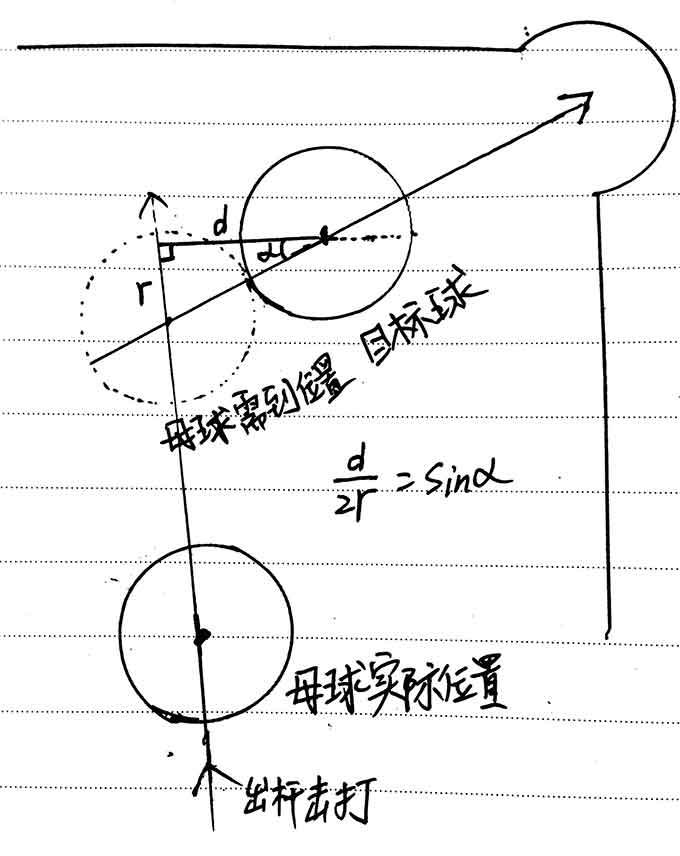 d
α
r
目标球
母球需到位置
d/2r = sinα
母球实际位置
出杆击打